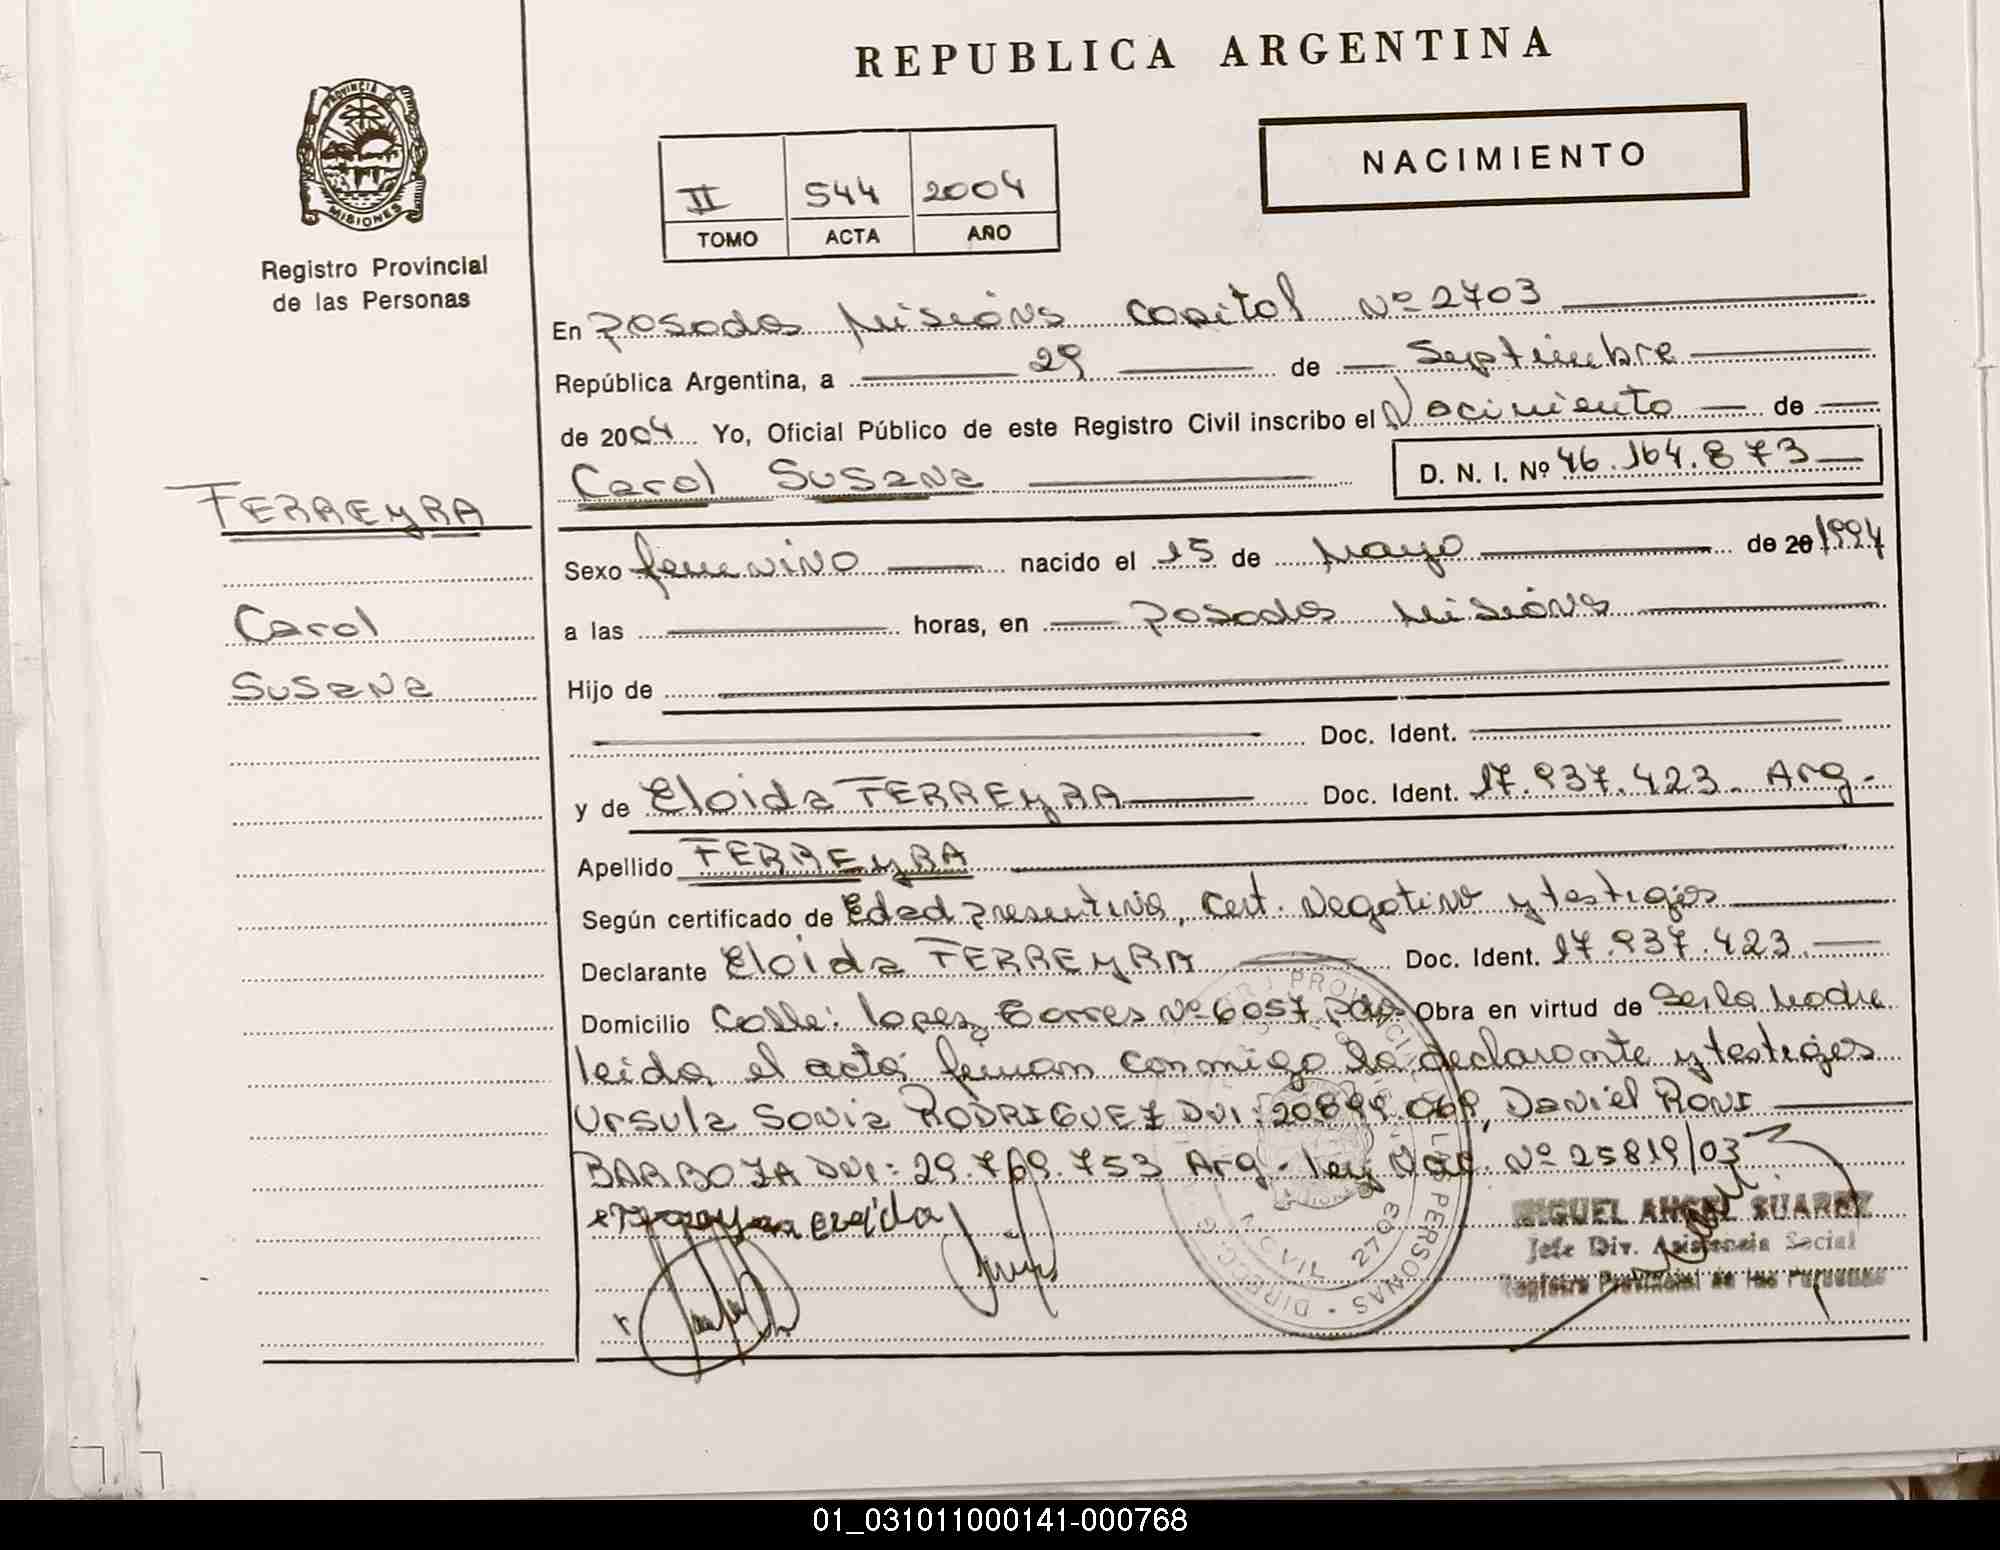 REPUBLICA ARGENTINA
PROVINCIA DE
MISIONES
Registro Provincial
de las Personas
NACIMIENTO
II 544 2004
TOMO ACTA AÑO
En Posadas Misiones Capital Nº 2703
República Argentina, a 29 de Septiembre
de 2004 Yo, Oficial Público de este Registro Civil inscribo el Nacimiento de
Carol Susana D. N. I. Nº 46.164.873
FERREYRA
Carol
Susana
Sexo femenino nacido el 15 de Mayo de 20 1994
a las horas, en Posadas Misiones
Hijo de
Doc. Ident.
y de Eloida FERREYRA Doc. Ident. 17.937.423. Arg.
Apellido FERREYRA
Según certificado de Edad presuntiva, Cert. Negativo y testigos
Declarante Eloida FERREYRA Doc. Ident. 17.937.423.
Domicilio Calle: Lopez Torres Nº 6057 Pdas Obra en virtud de Ser la Madre
leida el acta firman conmigo la declarante y testigos
Ursula Sonia RODRIGUEZ DNI: 20.899.069, Daniel Roni
BARBOZA DNI: 29.769.753 Arg. Ley Nac. Nº 25819/03
MIGUEL ANGEL SUAREZ
Jefe Div. Asistencia Social
Registro Provincial de las Personas
01_031011000141-000768